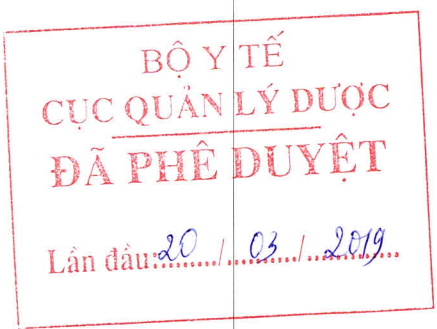 BỘ Y TẾ
CỤC QUẢN LÝ DƯỢC
ĐÃ PHÊ DUYỆT
Lần đầu:20/03/2019